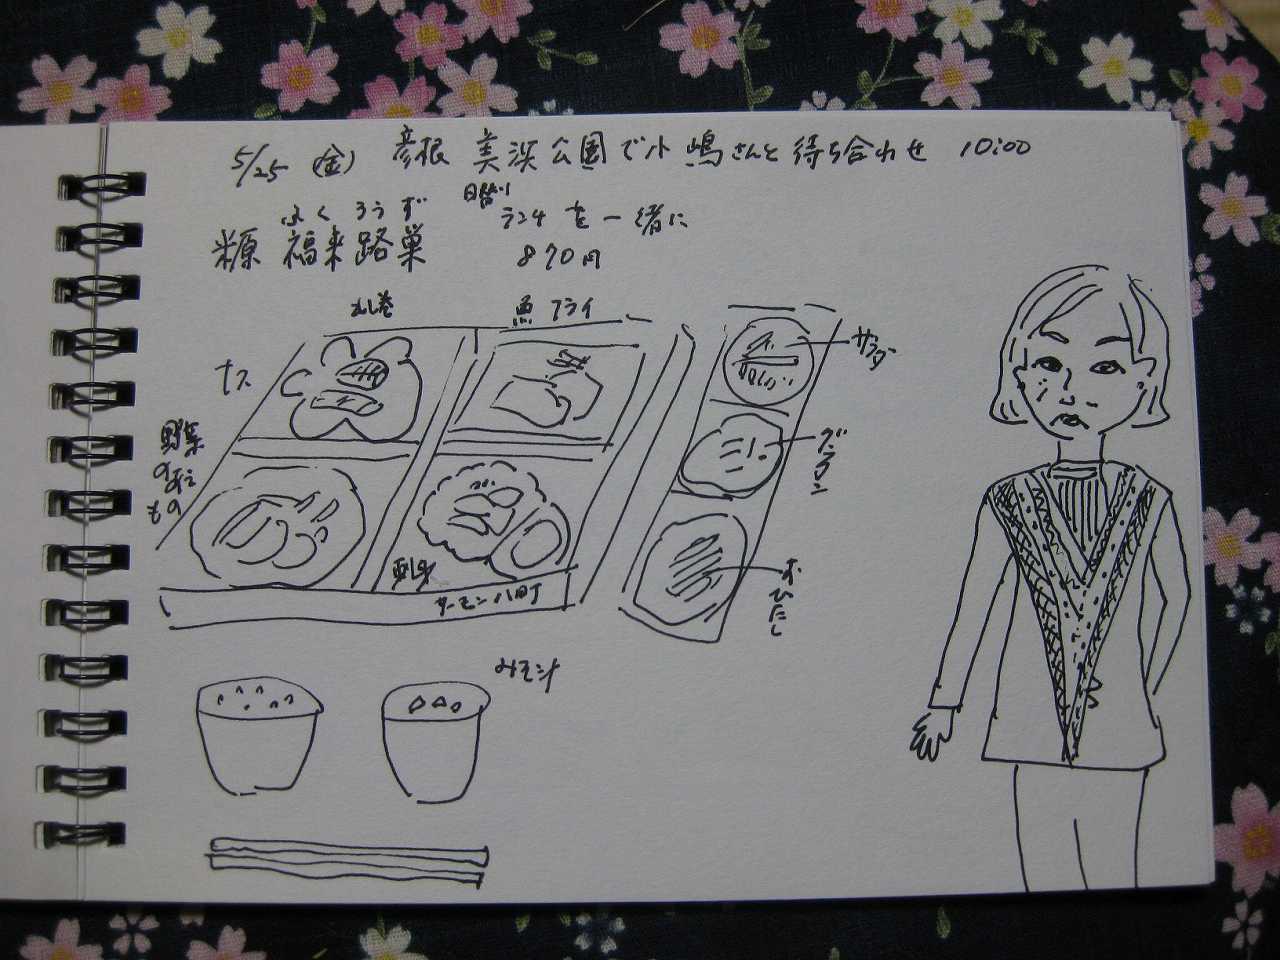 5/25 (金) 彦根 美浜公園で小嶋さんと待ち合わせ 10:00
ふくろうず 日替り
米原 福来路巣 ランチを一緒に
870円
だし巻 魚フライ
サラダ
ナス
野菜
のあえ
もの
グラタン
おひたし
刺身
サーモン ハマチ
みそ汁